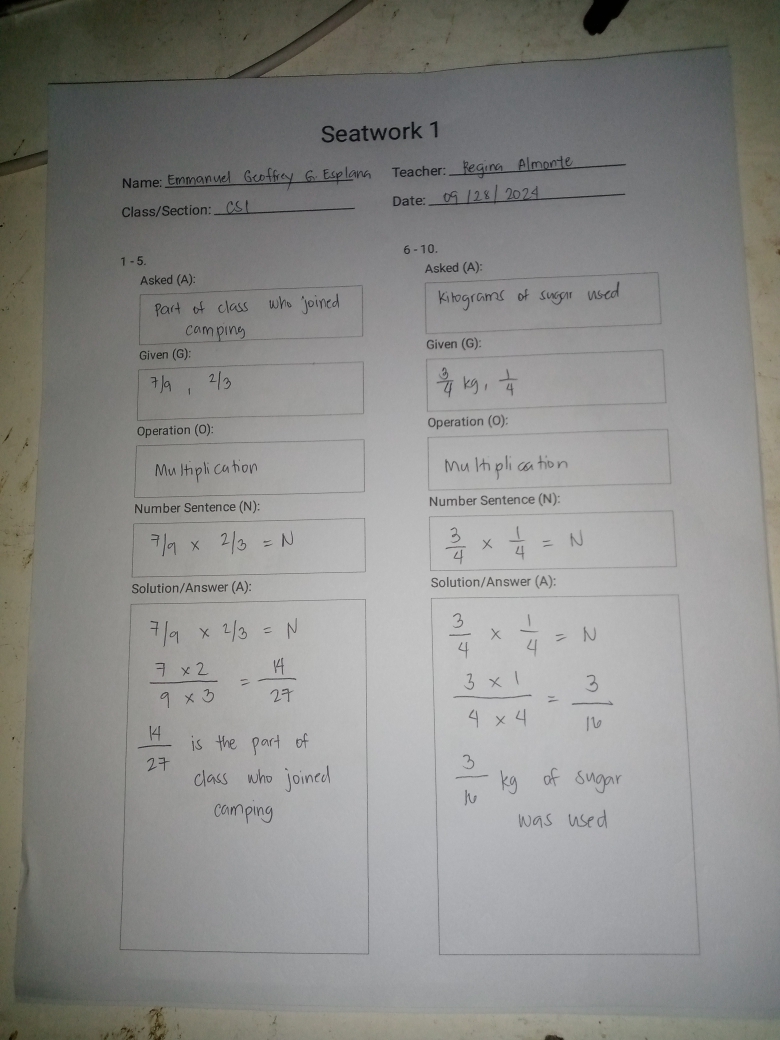 Seatwork 1
Name: Emmanuel Geoffrey G. Esplana
Teacher: Regina Almonte
Class/Section: CS1
Date: 09/28/2024
1 - 5.
Asked (A):
Part of class who joined
camping
Given (G):
7/9 , 2/3
Operation (O):
Multiplication
Number Sentence (N):
7/9 x 2/3 = N
Solution/Answer (A):
7/9 x 2/3 = N
7 x 2 / 9 x 3 = 14/27
14/27 is the part of
class who joined
camping
6 - 10.
Asked (A):
Kilograms of sugar used
Given (G):
3/4 kg, 1/4
Operation (O):
Multiplication
Number Sentence (N):
3/4 x 1/4 = N
Solution/Answer (A):
3/4 x 1/4 = N
3 x 1 / 4 x 4 = 3/16
3/16 kg of sugar
was used